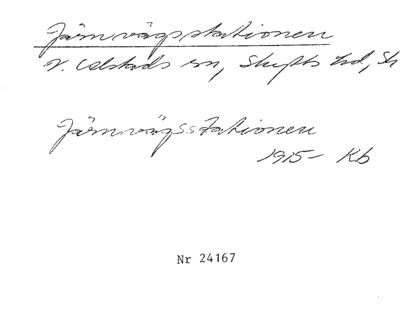 Järnvägsstationen
N. Valstads sn, Skyfts hd, Sk
Järnvägsstationen
1915- Kb
Nr 24167